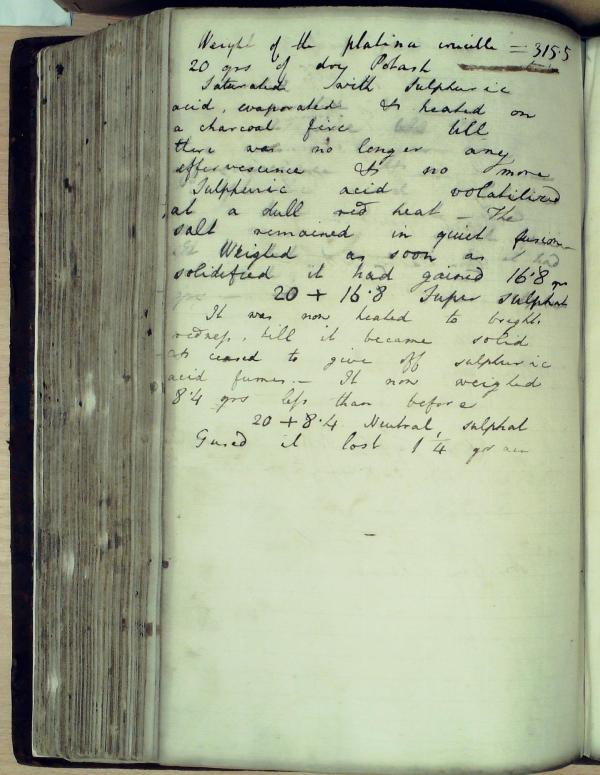 Weight of the platina crucible = 315·5
20 grs of dry Potash
Saturated with Sulphuric
acid, evaporated & heated on
a charcoal fire till
there was no longer any
effervescence & no more
Sulphuric acid volatilized
at a dull red heat – The
salt remained in quiet fusion –
Weighed as soon as it had
solidified it had gained 16·8 grs
20 + 16·8 Super Sulphat
It was now heated to bright
redness, till it became solid
& ceased to give off sulphuric
acid fumes. – It now weighed
8·4 grs less than before
20 + 8·4 Neutral, sulphat
Fused it lost 1/4 gr